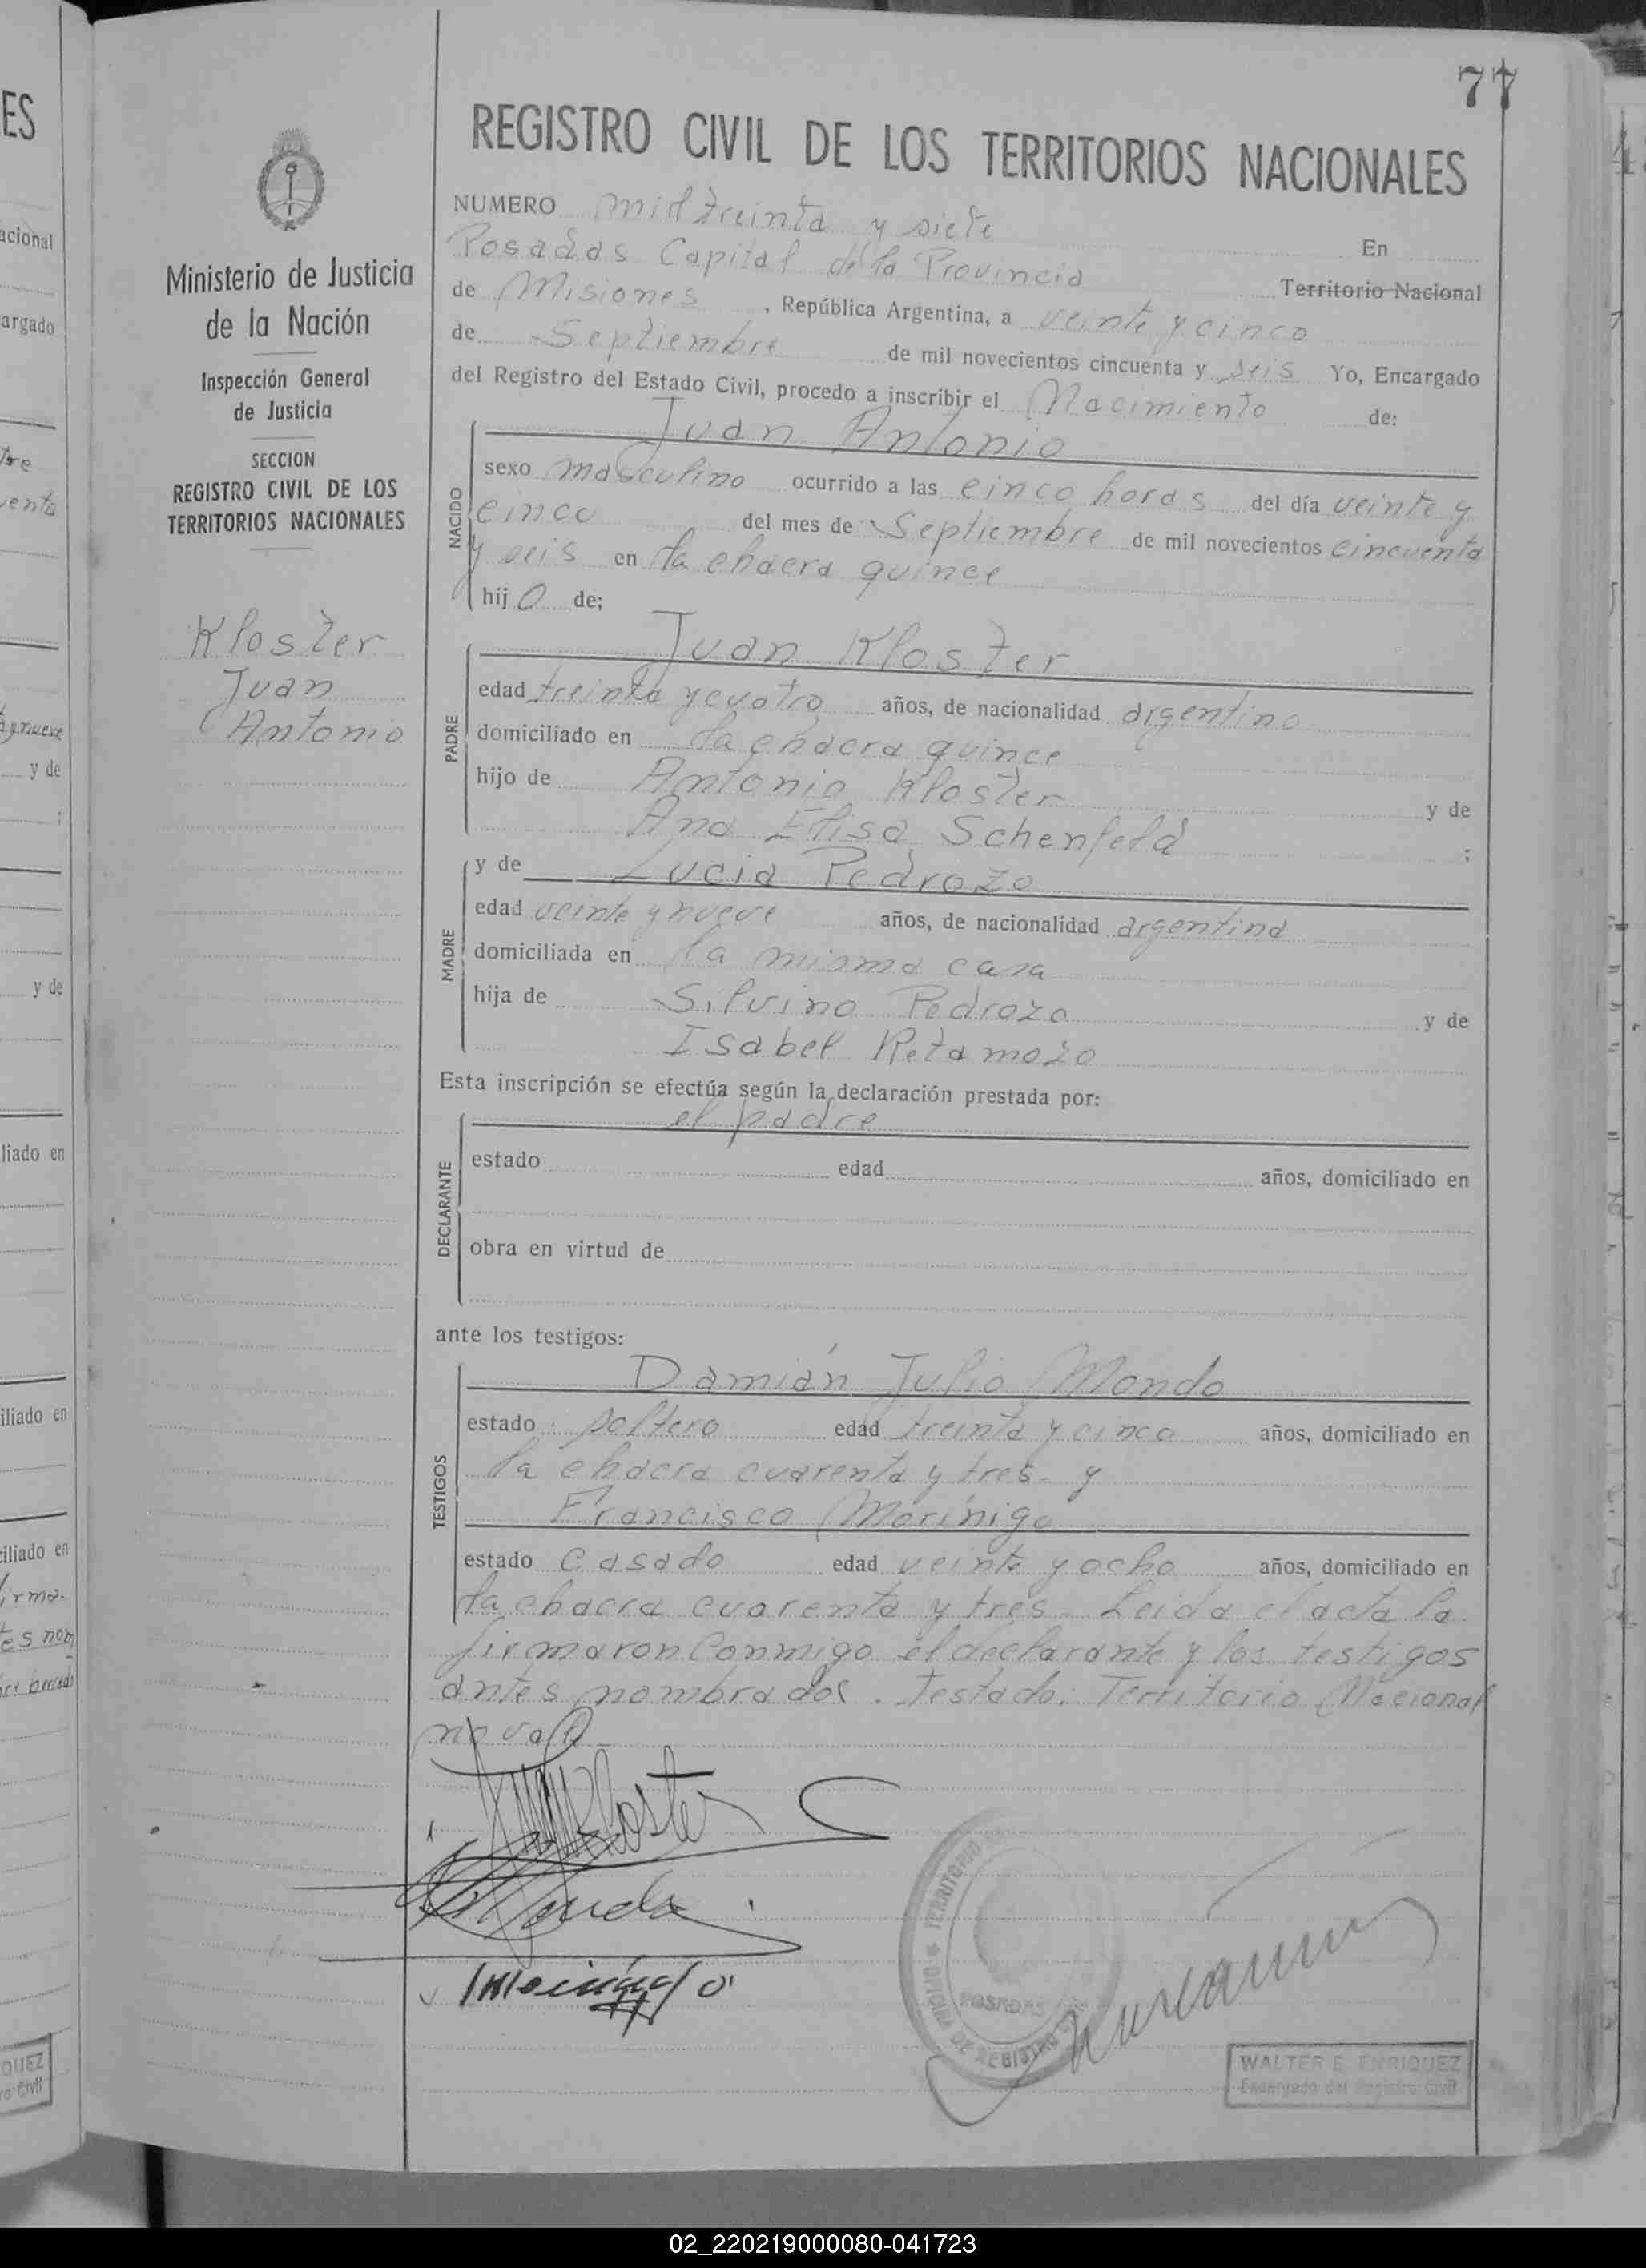 77
REGISTRO CIVIL DE LOS TERRITORIOS NACIONALES
Ministerio de Justicia
de la Nación
Inspección General
de Justicia
SECCION
REGISTRO CIVIL DE LOS
TERRITORIOS NACIONALES
Kloster
Juan
Antonio
NUMERO mil treinta y siete
En
Posadas Capital de la Provincia Territorio Nacional
de Misiones, República Argentina, a veinte y cinco
de Septiembre de mil novecientos cincuenta y seis Yo, Encargado
del Registro del Estado Civil, procedo a inscribir el Nacimiento de:
NACIDO
Juan Antonio
sexo masculino ocurrido a las cinco horas del día veinte y
cinco del mes de Septiembre de mil novecientos cincuenta
y seis en la chacra quince
hijo de;
PADRE
Juan Kloster
edad treinta y cuatro años, de nacionalidad argentino
domiciliado en la chacra quince
hijo de Antonio Kloster y de
Ana Elisa Schenfeld ;
MADRE
y de Lucia Pedrozo
edad veinte y nueve años, de nacionalidad argentina
domiciliada en la misma casa
hija de Silvino Pedrozo y de
Isabel Retamozo
Esta inscripción se efectúa según la declaración prestada por:
DECLARANTE
el padre
estado edad años, domiciliado en
obra en virtud de
ante los testigos:
TESTIGOS
Damián Julio Mondo
estado soltero edad treinta y cinco años, domiciliado en
la chacra cuarenta y tres - y
Francisco Morínigo
estado casado edad veinte y ocho años, domiciliado en
la chacra cuarenta y tres - Leida el acta la
firmaron conmigo el declarante y los testigos
antes nombrados. Testado: Territorio Nacional
no vale
Kloster
OFICINA DE REGISTRO
TERRITORIO
POSADAS
WALTER E. ENRIQUEZ
Encargado del Registro Civil
ES
acional
argado
y de
y de
liado en
iliado en
iliado en
QUEZ
02_220219000080-041723